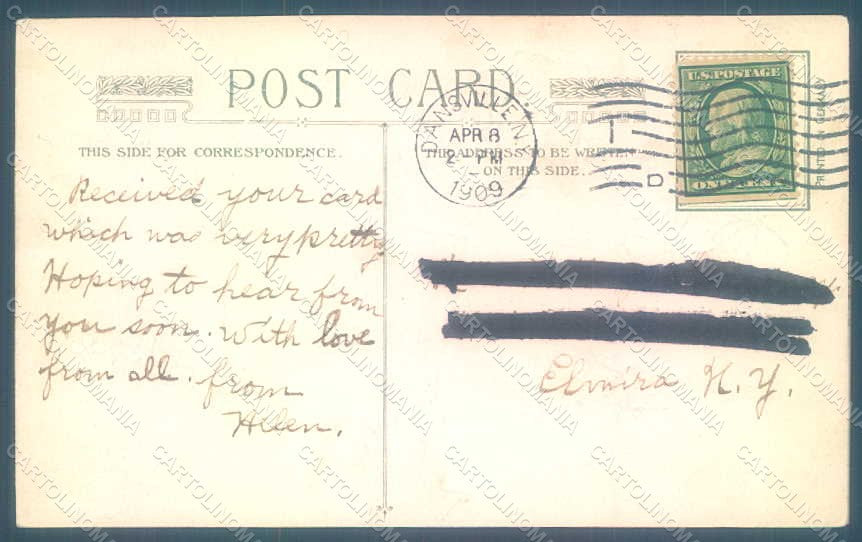 POST CARD
THIS SIDE FOR CORRESPONDENCE.
THE ADDRESS TO BE WRITTEN
ON THIS SIDE.
DANSVILLE N.Y.
APR 8
2- PM
1909
D
U.S. POSTAGE
ONE CENT
PRINTED IN GERMANY
Received your card
which was very pretty
Hoping to hear from
you soon. With love
from all. from
Helen.
Elmira N.Y.
CARTOLINOMANIA